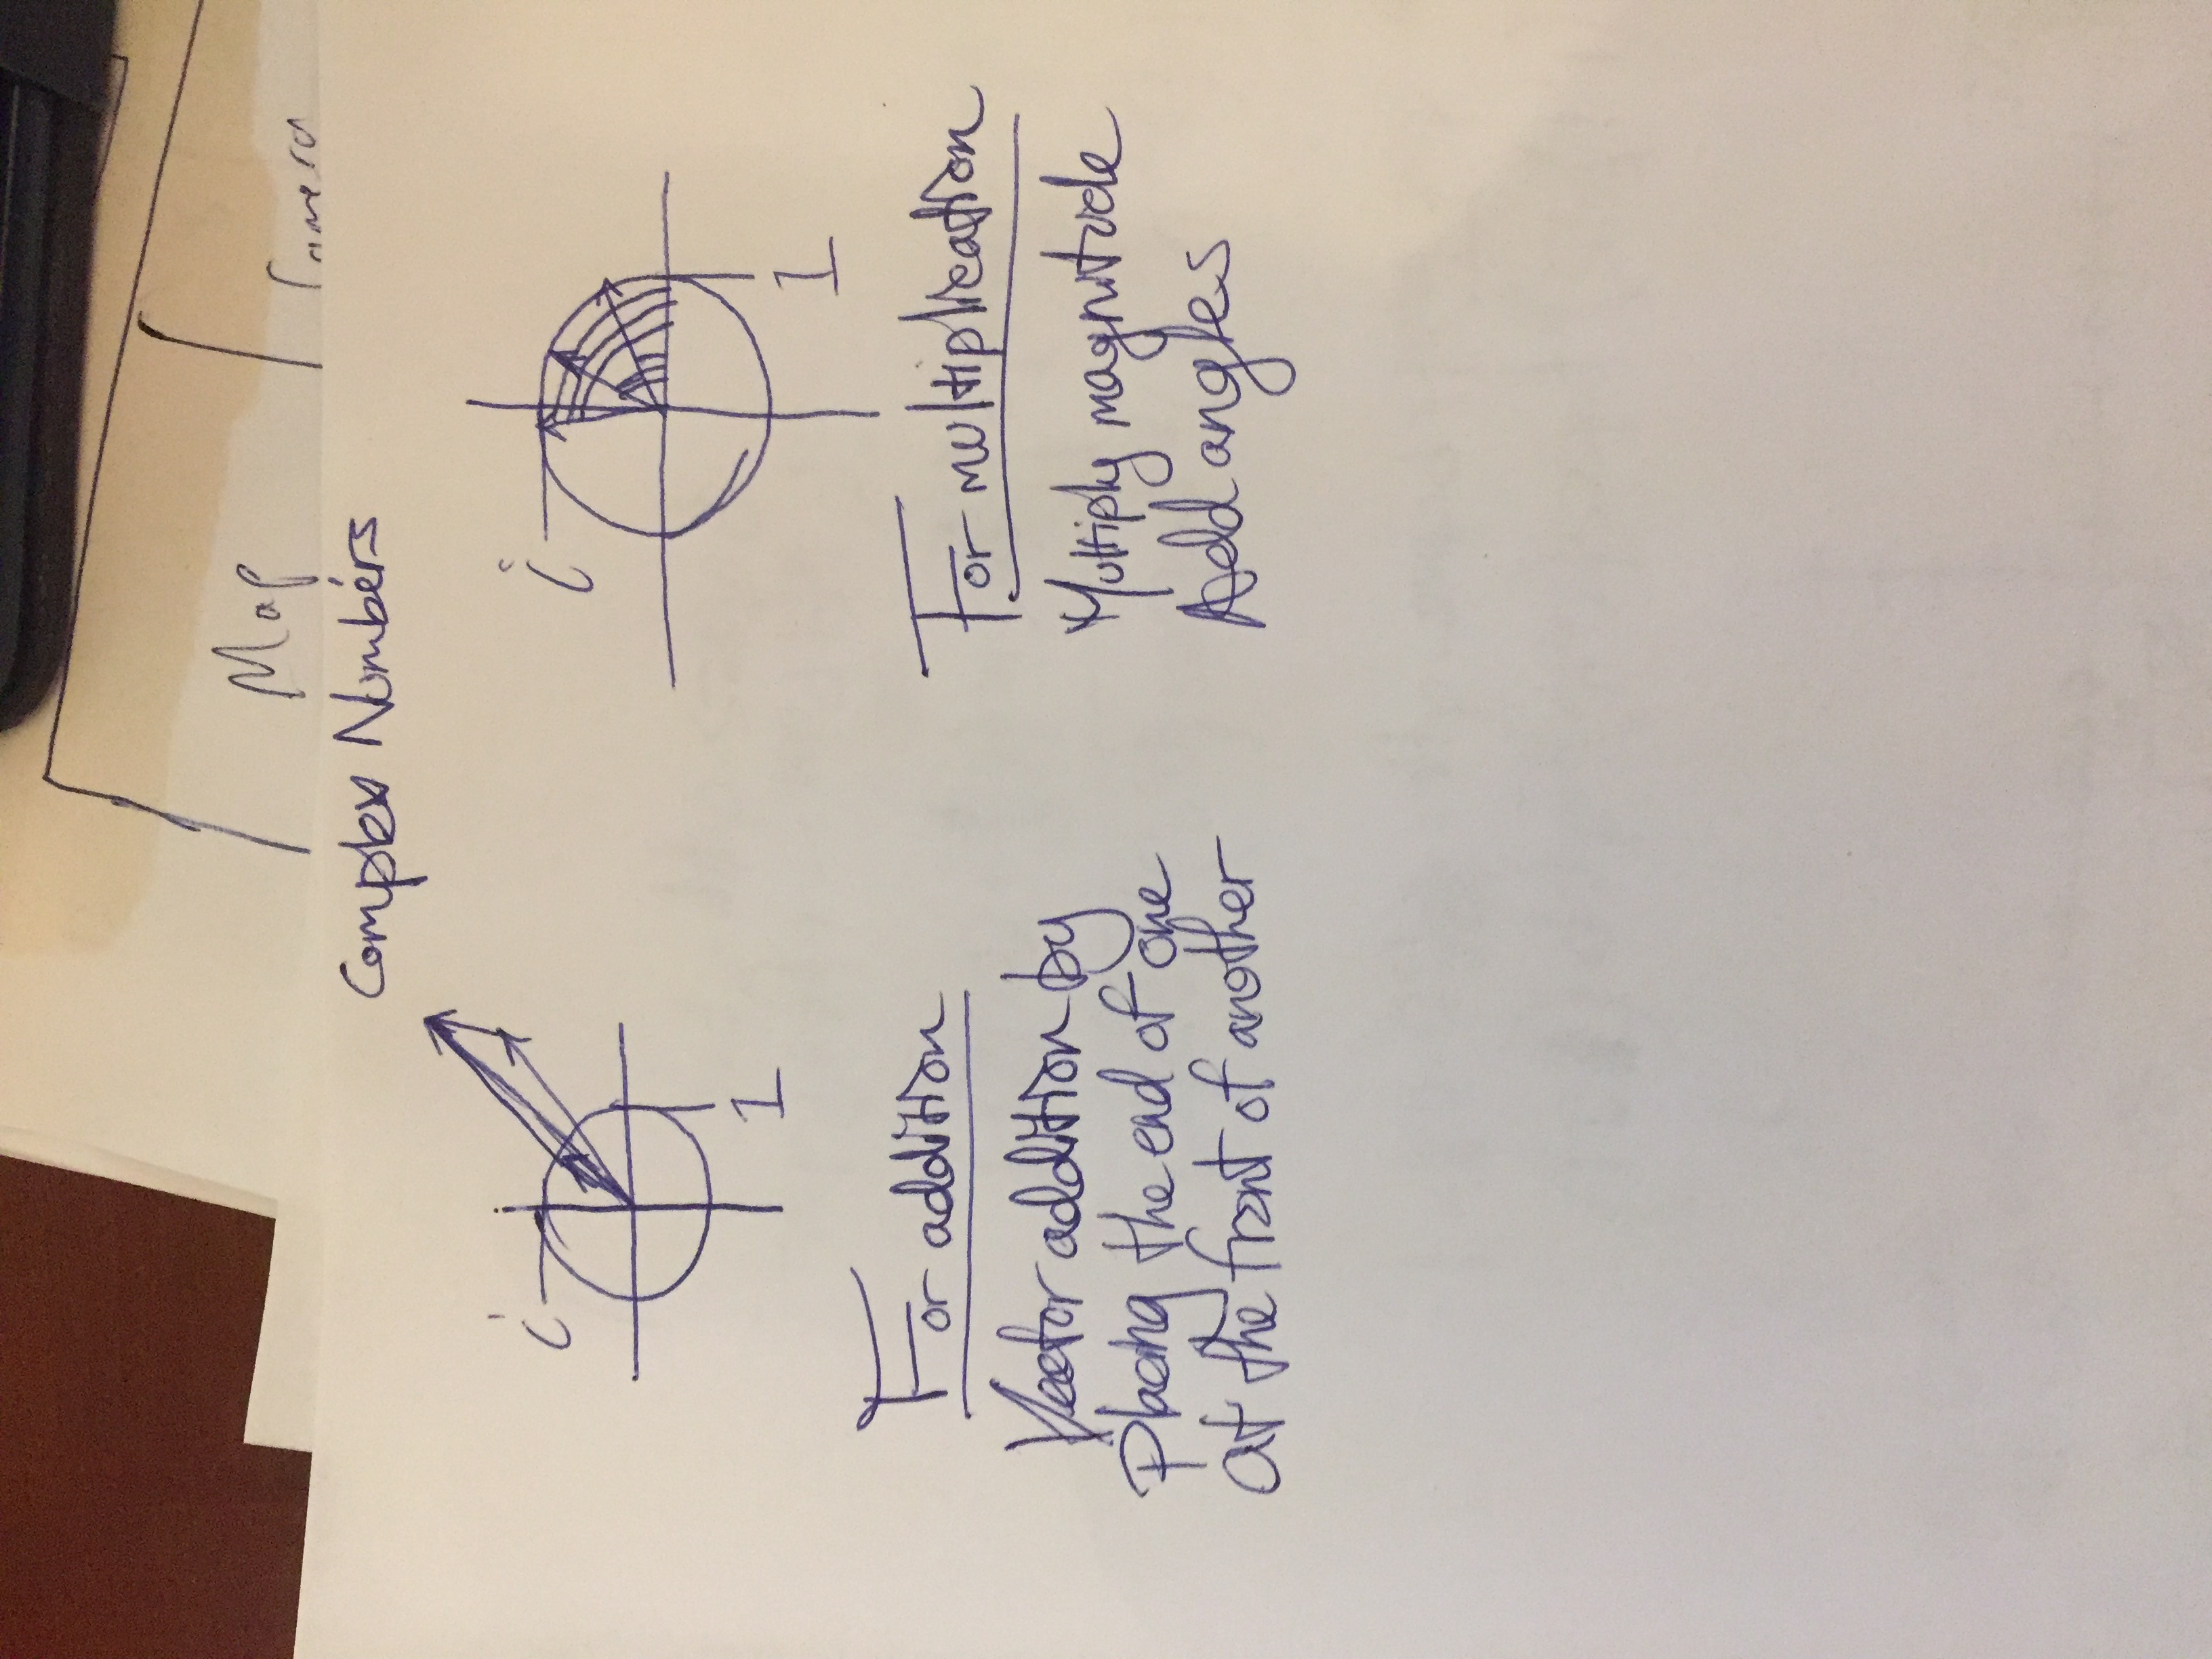 Map
Camera
Complex Numbers
i
1
i
1
For addition
Vector addition by
placing the end of one
at the front of another
For multiplication
Multiply magnitude
Add angles